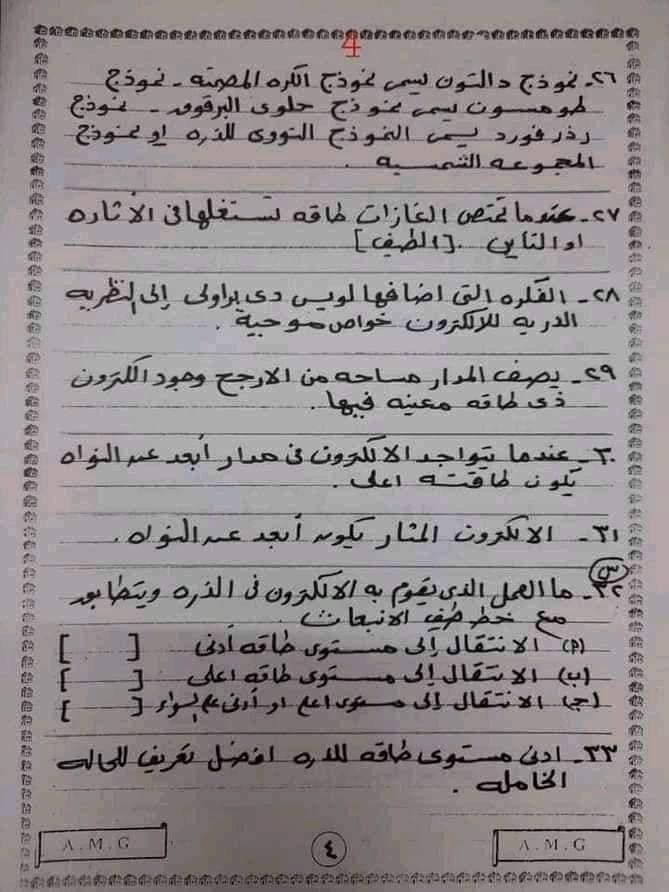 4
٢٦- نموذج دالتون يسمى نموذج الكره المصمته - نموذج
طومسون يسمى نموذج حلوى البرقوق - نموذج
رذرفورد يسمى النموذج النووى للذره او نموذج
المجموعه الشمسيه .
٢٧- عندما تمتص الغازات طاقه تستغلها فى الأثاره
او التأين . [الطيف]
٢٨- الفكره التى اضافها لويس دى براولى إلى النظريه
الذريه للالكترون خواص موجية .
٢٩- يصف المدار مساحه من الارجح وجود الكترون
ذى طاقه معينه فيها .
٣٠- عندما يتواجد الالكترون فى مدار أبعد عن النواه
يكون طاقته اعلى .
٣١- الالكترون المثار يكون أبعد عن النواه .
س
٣٢- ما العمل الذى يقوم به الالكترون فى الذره ويتطابق
مع خط طيف الانبعاث .
(٩) الانتقال إلى مستوى طاقه أدنى [ ]
(ب) الانتقال إلى مستوى طاقه اعلى [ ]
(ج) الانتقال إلى مستوى اعلى او أدنى على السواء [ ]
٣٣- ادنى مستوى طاقه للذره افضل تعريف للحاله
الخامله .
A.M.G
٤
A.M.G